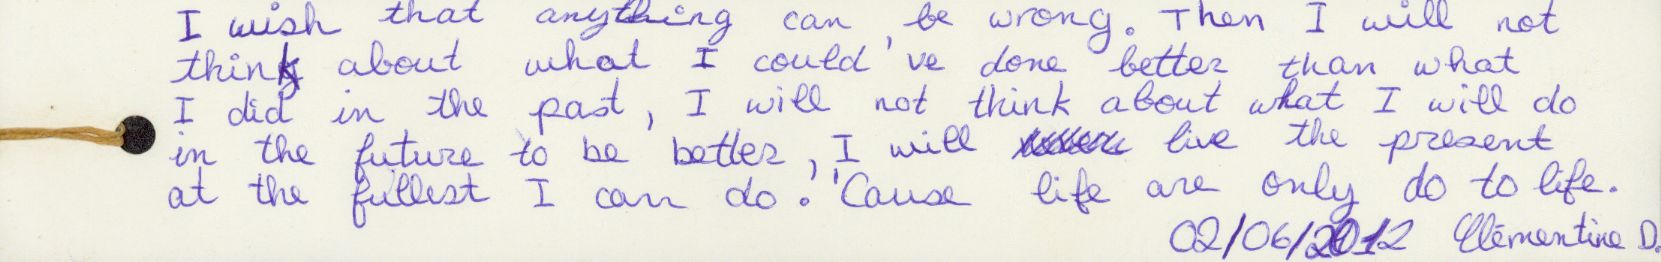 I wish that anything can be wrong. Then I will not
think about what I could 've done better than what
I did in the past, I will not think about what I will do
in the future to be better, I will live the present
at the fullest I can do. 'Cause life are only do to life.
02/06/2012 Clémentine D.